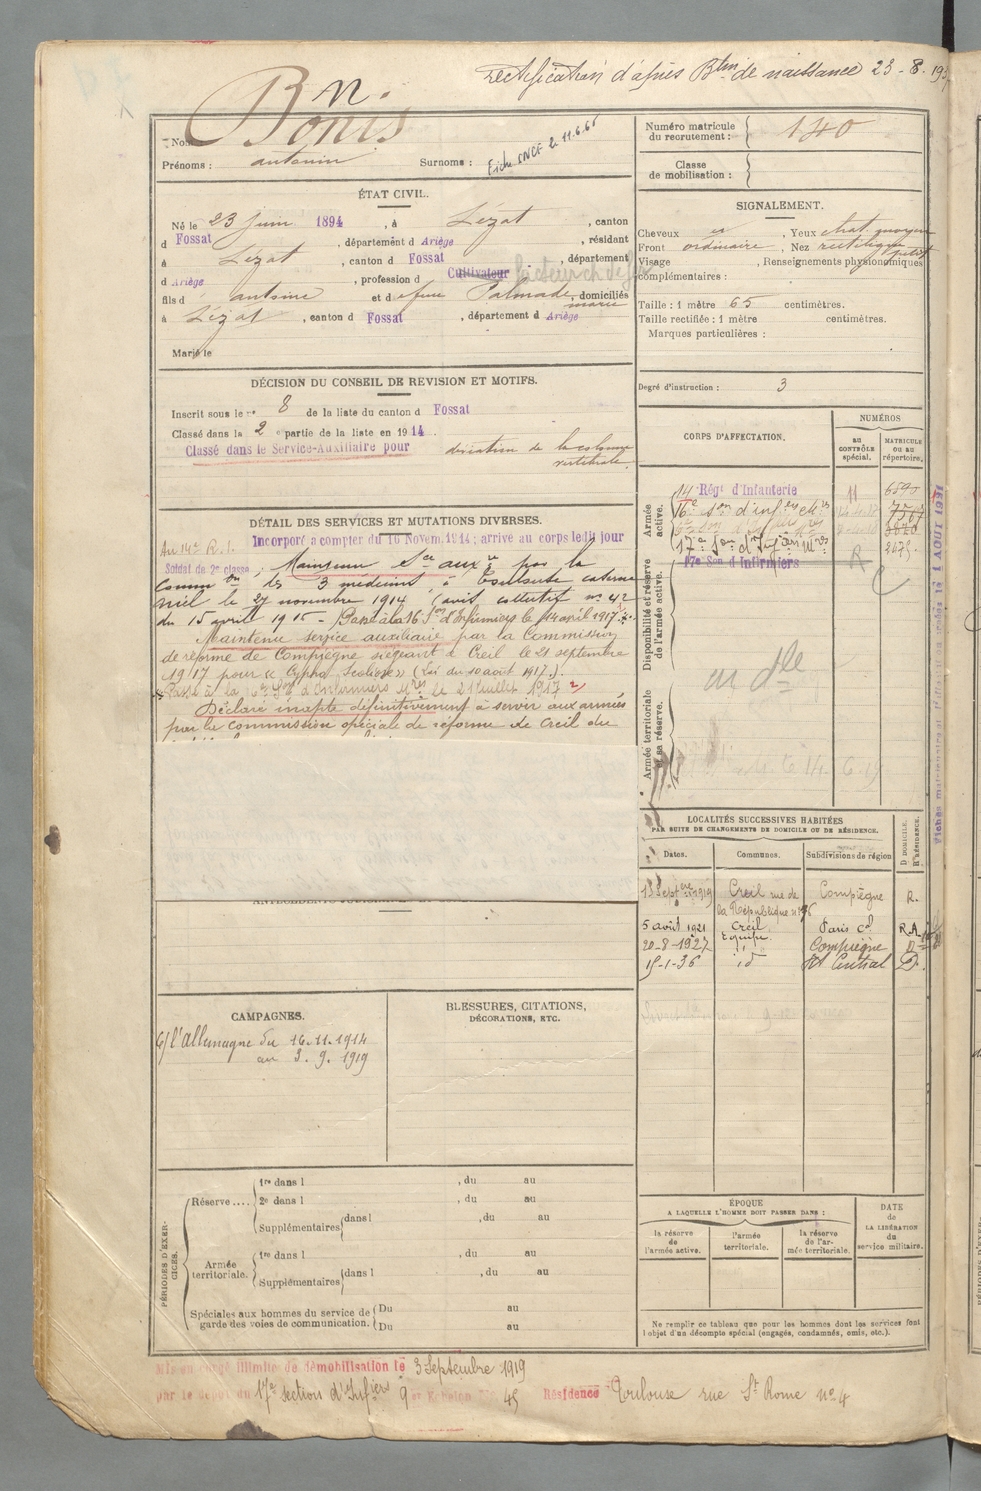 rectification d'après Btin de naissance 23-8-193
Bonis
n.
Nom
Prénoms : antonin Surnoms :
Fiche SNCF le 11.6.65
ÉTAT CIVIL.
Né le 23 juin 1894, à Lézat, canton
d Fossat, département d Ariège, résidant
à Lézat, canton d Fossat, département
d Ariège, profession d Cultivateur facteur ch de fer
fils d antoine et d feue Palmade marie, domiciliés
à Lézat, canton d Fossat, département d Ariège
Marié le
DÉCISION DU CONSEIL DE REVISION ET MOTIFS.
Inscrit sous le no 8 de la liste du canton d Fossat
Classé dans la 2e partie de la liste en 1914.
Classé dans le Service-Auxiliaire pour déviation de la colonne
vertébrale.
DÉTAIL DES SERVICES ET MUTATIONS DIVERSES.
Au 14e R.I. Incorporé a compter du 16 Novem. 1914; arrivé au corps le dit jour
Soldat de 2e classe; Maintenu Sce auxre par la
Common des 3 médecins à Toulouse caserne
Niel le 27 novembre 1914 (avis collectif no 42
du 15 avril 1915 - Passé à la 16 Son d'Infirmiers le 14 avril 1917.
Maintenu service auxiliaire par la Commission
de réforme de Compiègne siégeant à Creil le 21 septembre
1917 pour "Cypho Scoliose" (Loi du 10 août 1917).
Passé à la 6e Son d'Infirmiers Mres le 21 Juillet 1917
Déclaré inapte définitivement à servir aux armées
par la commission spéciale de réforme de Creil du
CAMPAGNES.
c/ l'allemagne du 16.11.1914
au 3.9.1919
BLESSURES, CITATIONS,
DÉCORATIONS, ETC.
PÉRIODES D'EXERCICES.
Réserve....
1re dans l , du au
2e dans l , du au
Supplémentaires dans l , du au
Armée
territoriale.
1re dans l , du au
Supplémentaires dans l , du au
Spéciales aux hommes du service de
garde des voies de communication.
Du au
Du au
Mis en congé illimité de démobilisation le 3 Septembre 1919
par le dépôt du 17e section d'Infiers 9er Echelon No 45 Résidence Toulouse rue St Rome no 4
Numéro matricule
du recrutement : 140
Classe
de mobilisation :
SIGNALEMENT.
Cheveux et, Yeux chat. moyen
Front ordinaire, Nez rectiligne
petit
Visage , Renseignements physionomiques
complémentaires :
Taille : 1 mètre 65 centimètres.
Taille rectifiée : 1 mètre centimètres.
Marques particulières :
Degré d'instruction : 3
CORPS D'AFFECTATION.
NUMÉROS
au
CONTRÔLE
spécial.
MATRICULE
ou au
répertoire.
Armée
active.
14 Régt d'Infanterie 11 6590
16e Son d'infers Mres 7567
17e Son d'Infiers Mres
17e Son d'Infirmiers R
Disponibilité et réserve
de l'armée active.
Armée territoriale
et sa réserve.
LOCALITÉS SUCCESSIVES HABITÉES
PAR SUITE DE CHANGEMENTS DE DOMICILE OU DE RÉSIDENCE.
Dates.
Communes.
Subdivisions de région
D DOMICILE.
R RÉSIDENCE.
13 Septbre 1919 Creil rue de Compiègne R.
la République no 96
5 août 1921 Creil Paris cal R.A
20-8-1927 Compiègne D
15-1-36 id Central D.
ÉPOQUE
A LAQUELLE L'HOMME DOIT PASSER DANS :
la réserve
de
l'armée active.
l'armée
territoriale.
la réserve
de l'armée
territoriale.
DATE
de
LA LIBÉRATION
du
service militaire.
Ne remplir ce tableau que pour les hommes dont les services font
l'objet d'un décompte spécial (engagés, condamnés, omis, etc.).